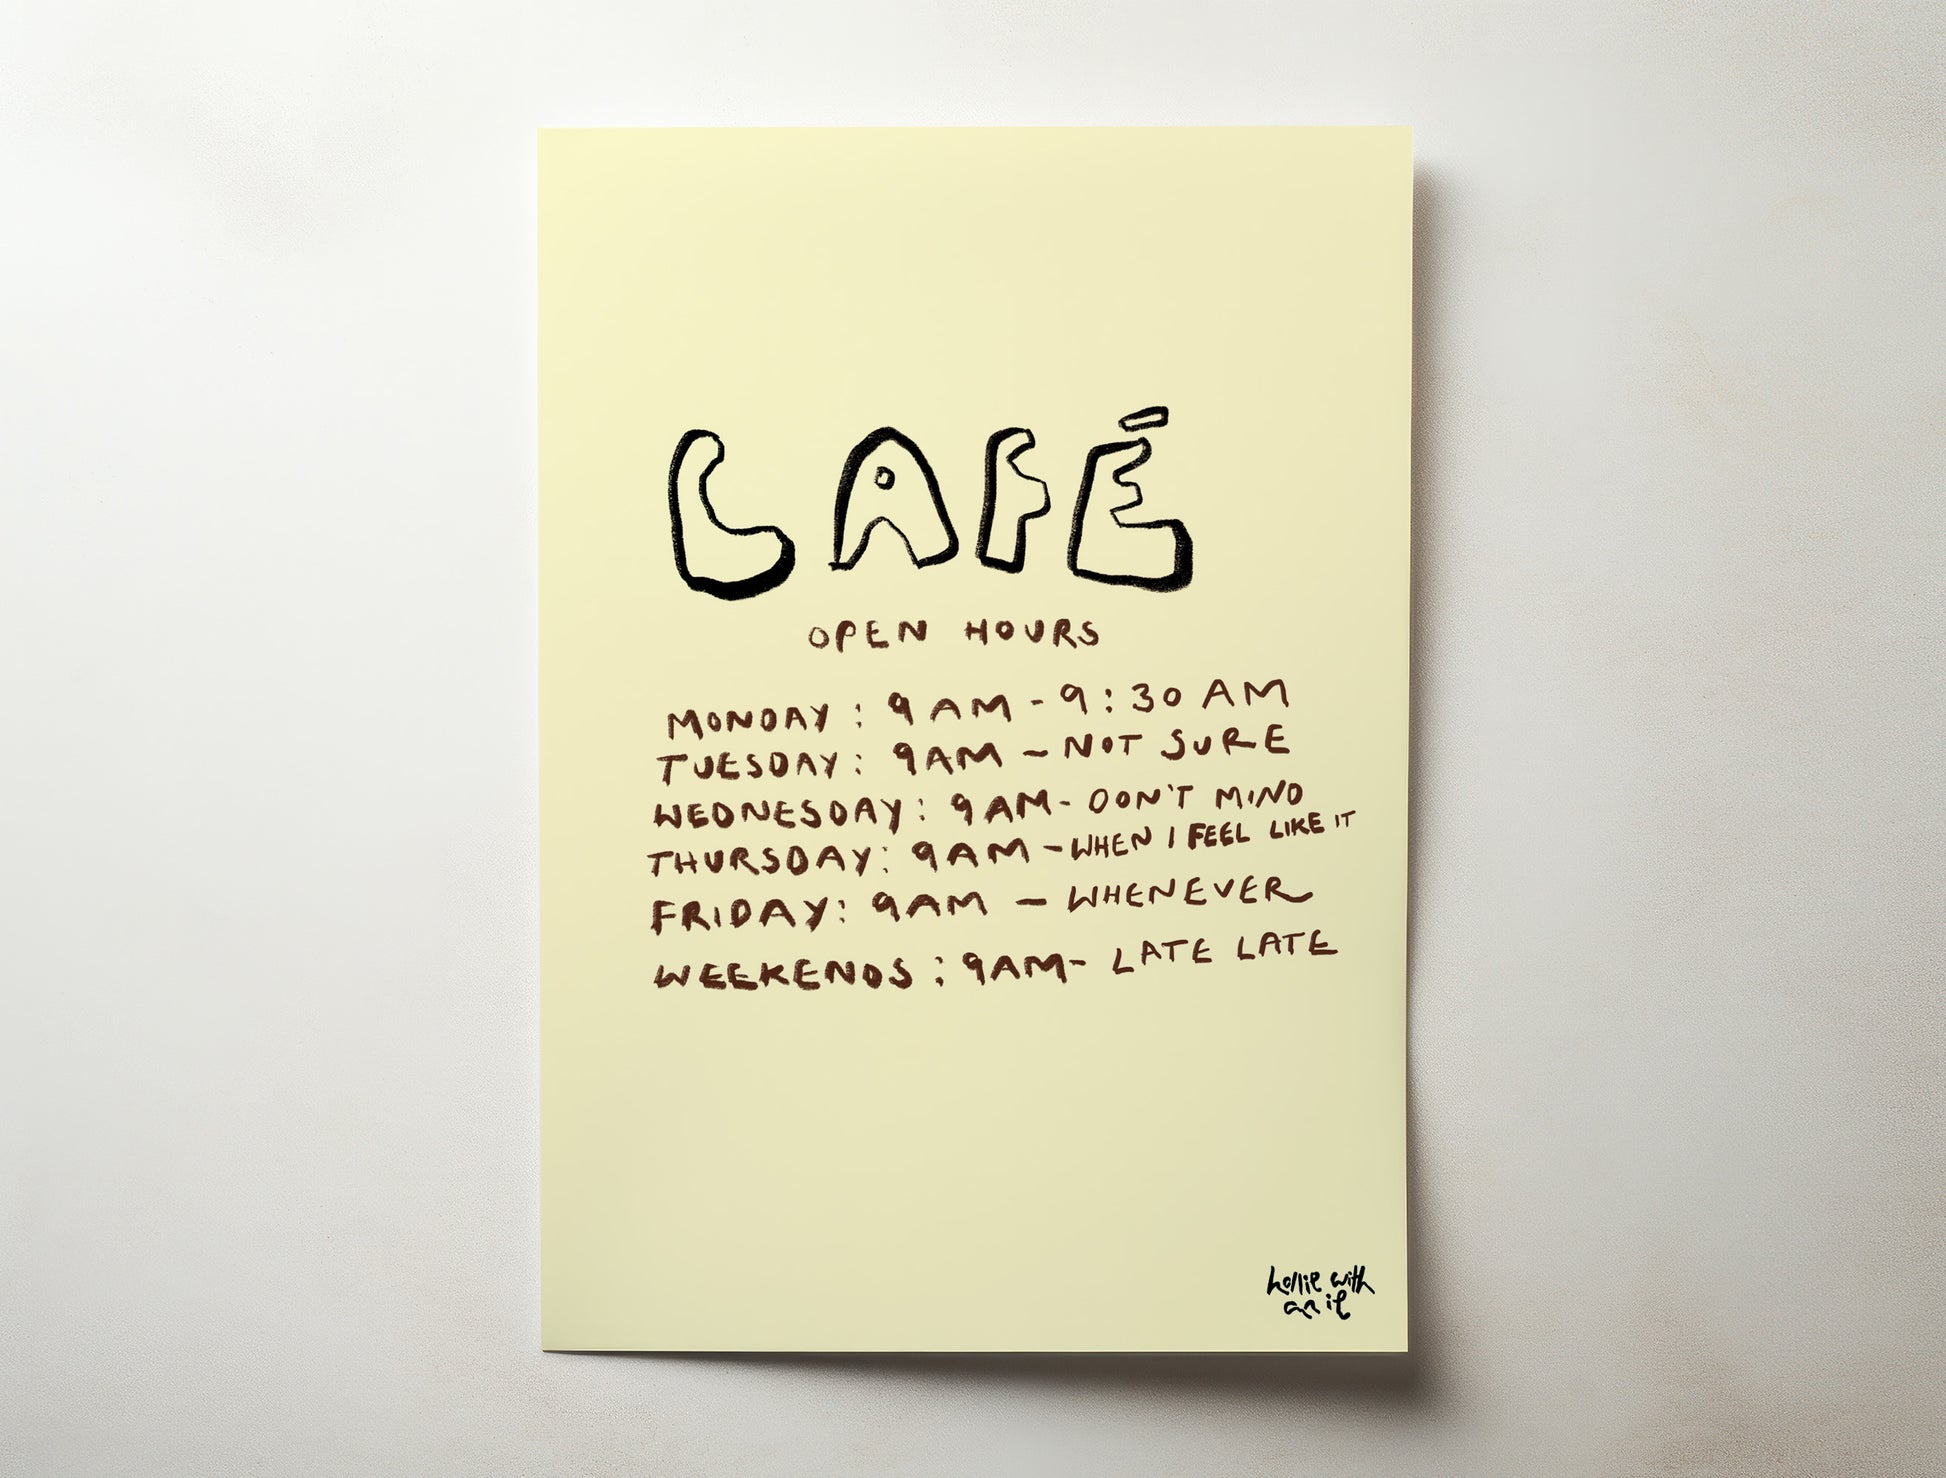 CAFÉ
OPEN HOURS
MONDAY : 9AM - 9:30AM
TUESDAY : 9AM - NOT SURE
WEDNESDAY : 9AM - DON'T MIND
THURSDAY : 9AM - WHEN I FEEL LIKE IT
FRIDAY : 9AM - WHENEVER
WEEKENDS : 9AM - LATE LATE
hollie with
an ie